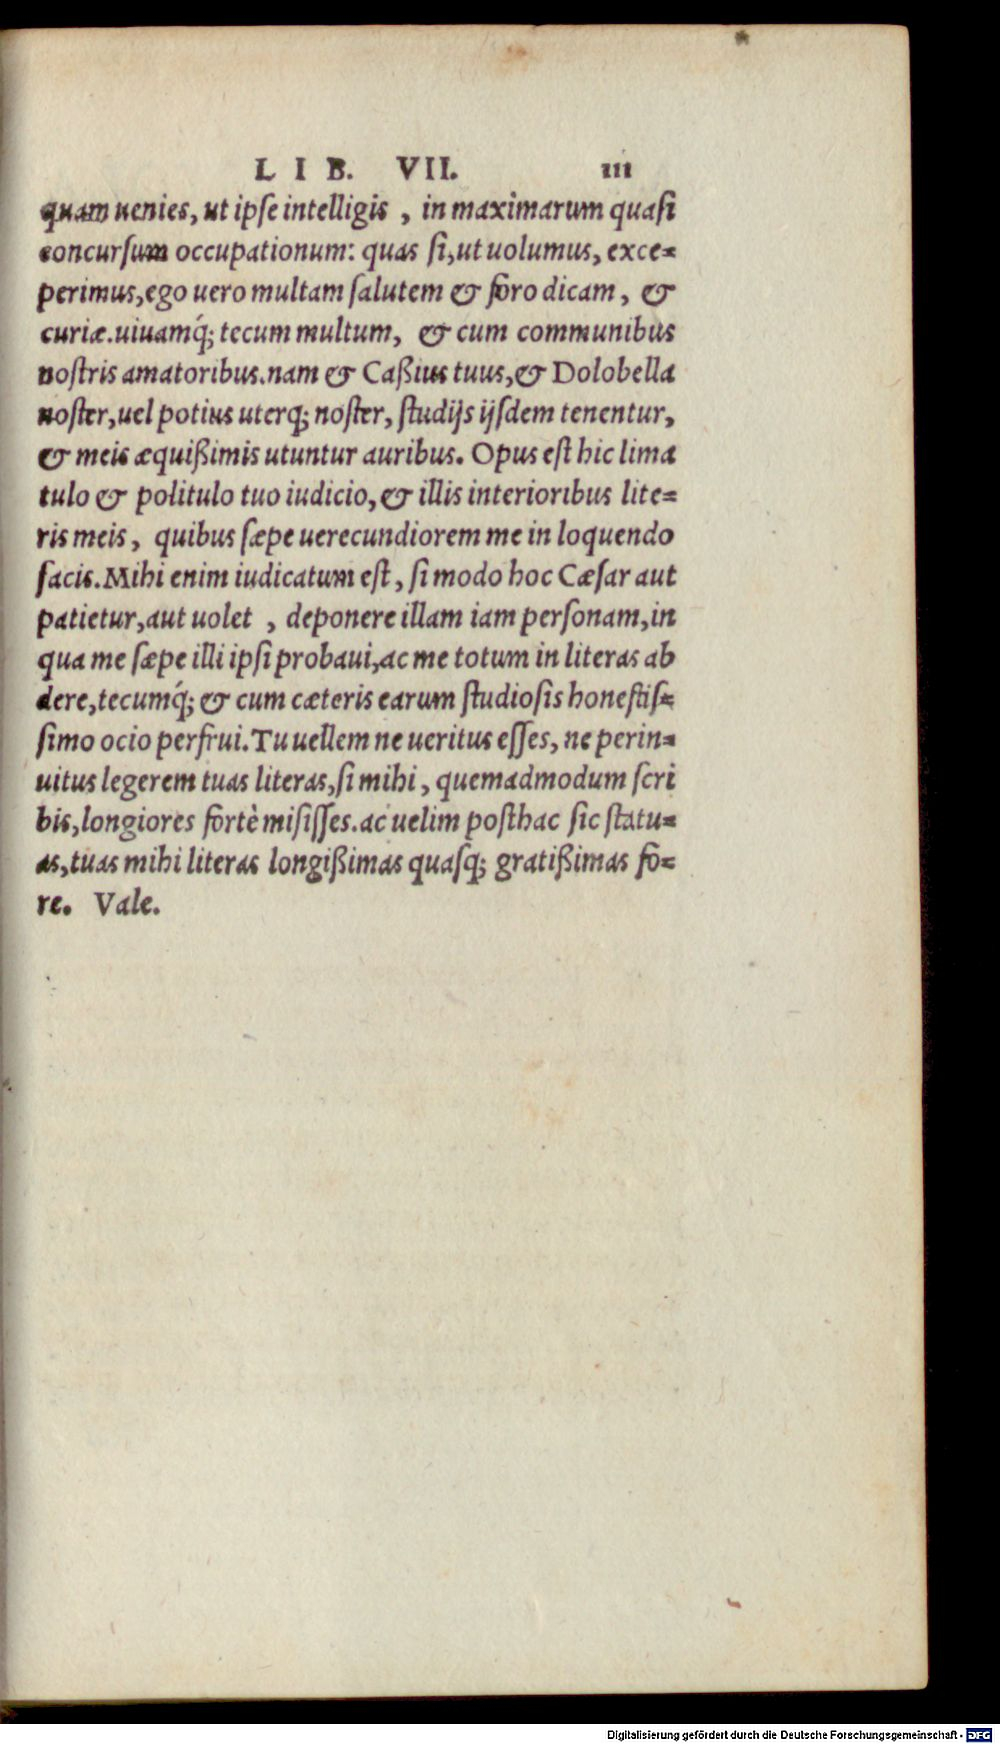 LIB. VII. 111
quam uenies, ut ipſe intelligis , in maximarum quaſi
concurſum occupationum: quas ſi, ut uolumus, exce=
perimus, ego uero multam ſalutem & foro dicam , &
curiæ. uiuamq́; tecum multum, & cum communibus
noſtris amatoribus. nam & Caßius tuus, & Dolobella
noſter, uel potius uterq; noſter, ſtudijs ijſdem tenentur,
& meis æquißimis utuntur auribus. Opus eſt hic lima
tulo & politulo tuo iudicio, & illis interioribus lite=
ris meis, quibus ſæpe uerecundiorem me in loquendo
facis. Mihi enim iudicatum eſt, ſi modo hoc Cæſar aut
patietur, aut uolet , deponere illam iam perſonam, in
qua me ſæpe illi ipſi probaui, ac me totum in literas ab
dere, tecumq́; & cum cæteris earum ſtudioſis honeſtiſ=
ſimo ocio perfrui. Tu uellem ne ueritus eſſes, ne perin=
uitus legerem tuas literas, ſi mihi , quemadmodum ſcri
bis, longiores fortè miſiſſes. ac uelim poſthac ſic ſtatu=
as, tuas mihi literas longißimas quaſq; gratißimas fo=
re. Vale.
Digitalisierung gefördert durch die Deutsche Forschungsgemeinschaft - DFG